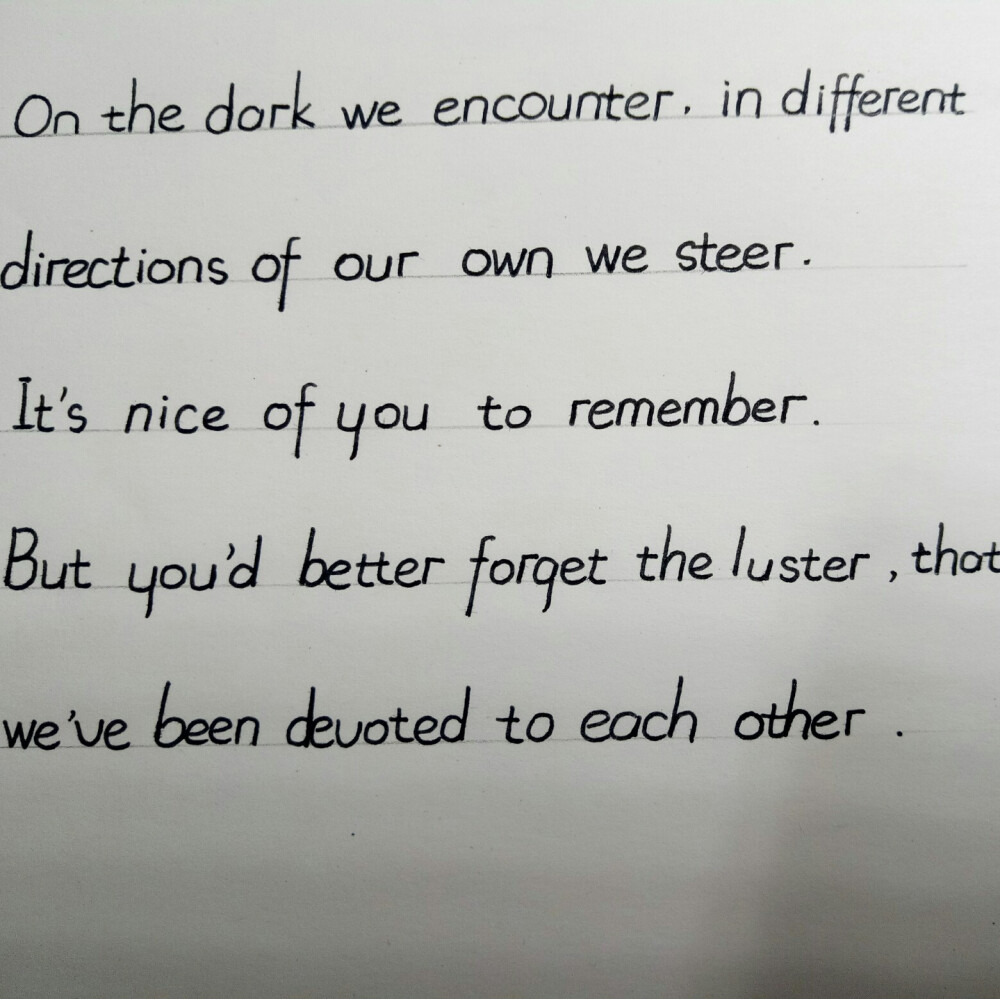 On the dark we encounter. in different
directions of our own we steer.
It's nice of you to remember.
But you'd better forget the luster, that
we've been devoted to each other.